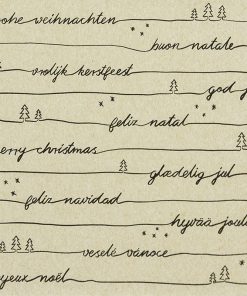 rohe weihnachten
buon natale
vrolijk kerstfeest
god j
feliz natal
erry christmas
glædelig jul
feliz navidad
hyvää joulu
veselé vánoce
yeux noël